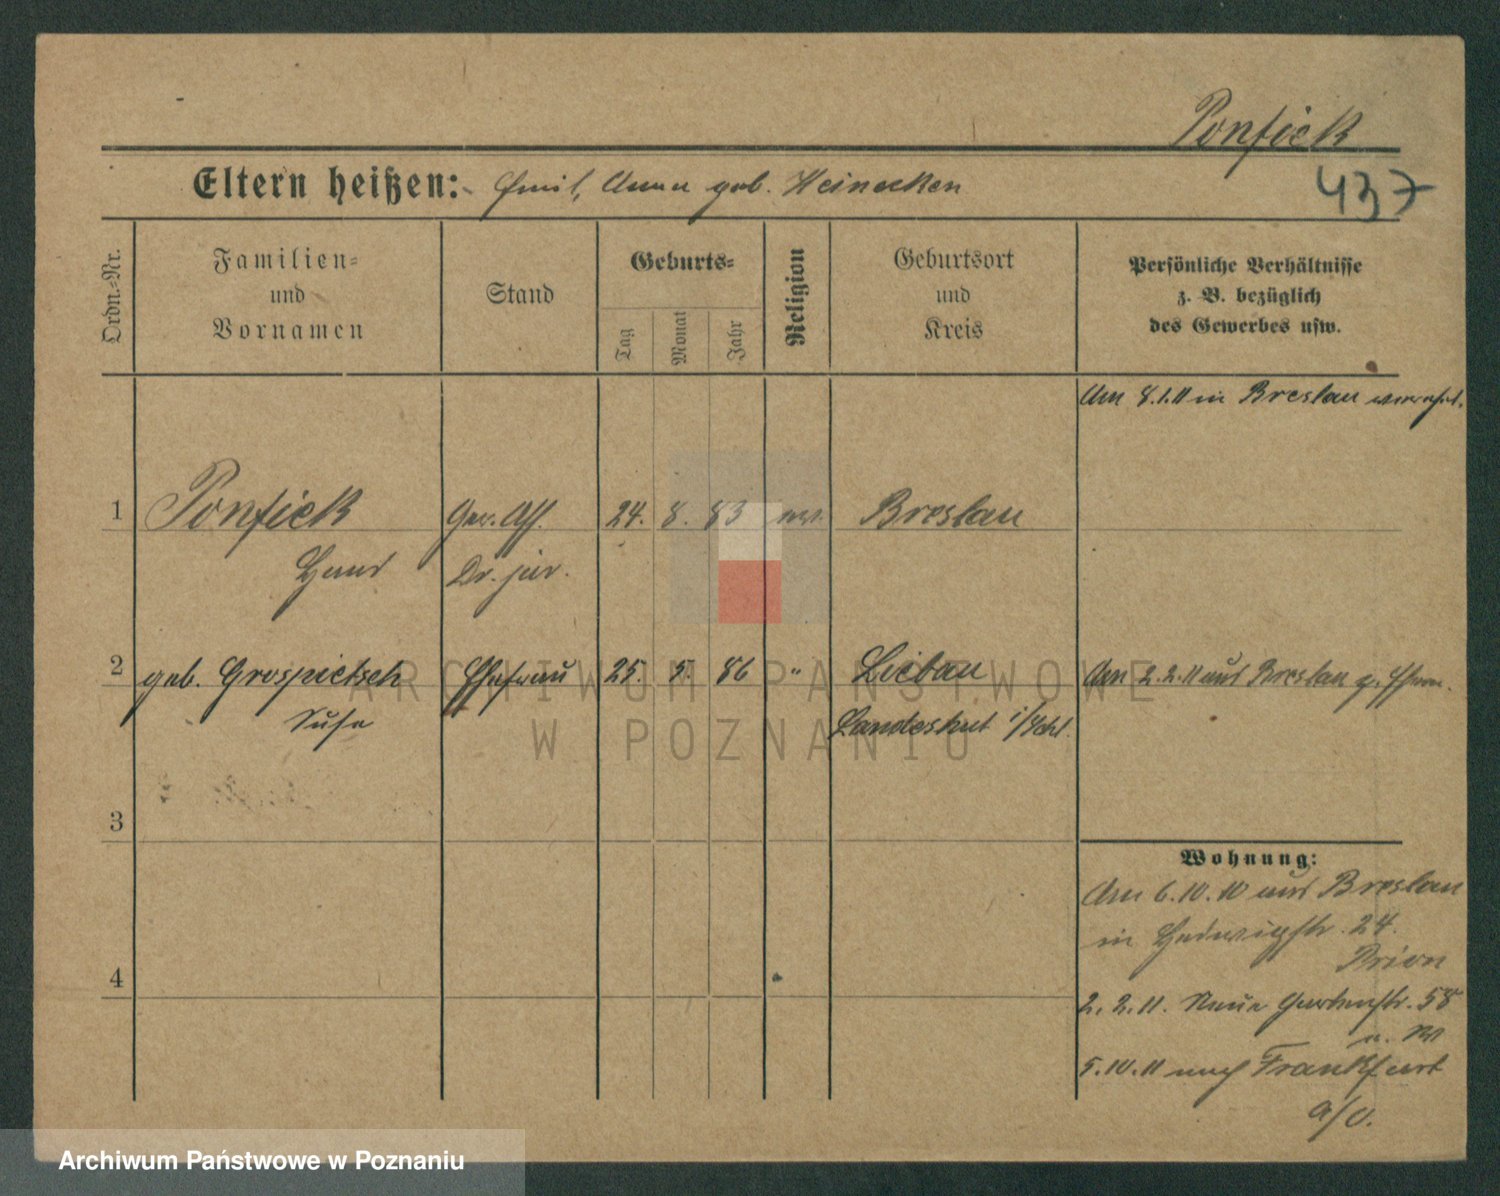 Ponfick
437
Eltern heißen: Emil, Anna geb. Heinecken
Ordn.-Nr.
Familien-
und
Vornamen
Stand
Geburts-
Tag
Monat
Jahr
Religion
Geburtsort
und
Kreis
Persönliche Verhältnisse
z. B. bezüglich
des Gewerbes usw.
Am 8.1.11 in Breslau verehel.
1 Ponfick Ger. Ass. 24. 8. 83 ev. Breslau
Hans Dr. jur.
2 geb. Grospietsch Ehefrau 25. 5. 86 " Liebau Am 2.2.11 aus Breslau z. Ehem.
Suse Landeshut i/Schl.
3
4
Wohnung:
Am 6.10.10 aus Breslau
in Hedwigstr. 24.
Brion
2.2.11. Neue Gartenstr. 58
5.10.11 nach Frankfurt
a/O.
ARCHIWUM PAŃSTWOWE
W POZNANIU
Archiwum Państwowe w Poznaniu